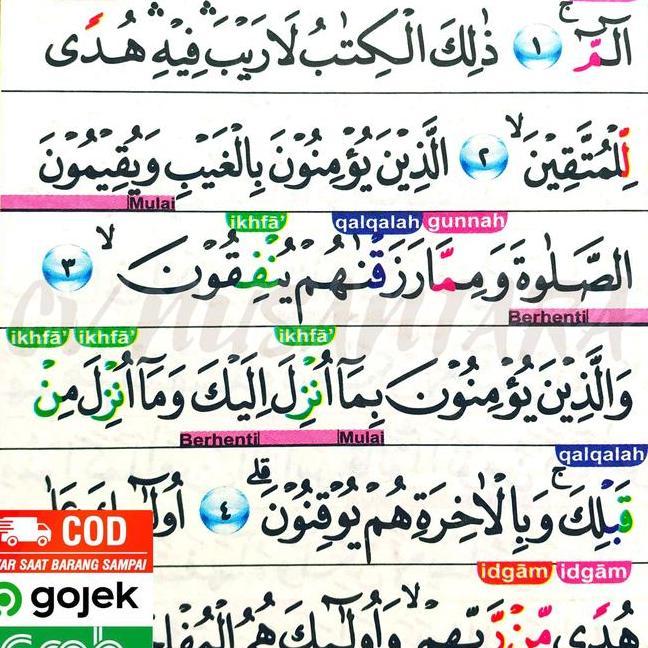 الۤمّۤ ۚ ١ ذٰلِكَ الْكِتٰبُ لَا رَيْبَ ۛ فِيْهِ ۛ هُدًى
لِّلْمُتَّقِيْنَۙ ٢ الَّذِيْنَ يُؤْمِنُوْنَ بِالْغَيْبِ وَيُقِيْمُوْنَ
Mulai
ikhfā' qalqalah gunnah
الصَّلٰوةَ وَمِمَّا رَزَقْنٰهُمْ يُنْفِقُوْنَ ۙ ٣
Berhenti
ikhfā' ikhfā' ikhfā'
وَالَّذِيْنَ يُؤْمِنُوْنَ بِمَآ اُنْزِلَ اِلَيْكَ وَمَآ اُنْزِلَ مِنْ
Berhenti Mulai
qalqalah
قَبْلِكَ ۚ وَبِالْاٰخِرَةِ هُمْ يُوْقِنُوْنَ ۗ ٤ اُولٰۤىِٕكَ
COD
AR SAAT BARANG SAMPAI
idgām idgām
gojek
هُدًى مِّنْ رَّبِّهِمْ ۙ وَاُولٰۤىِٕكَ هُمُ
CV. NUSANTARA